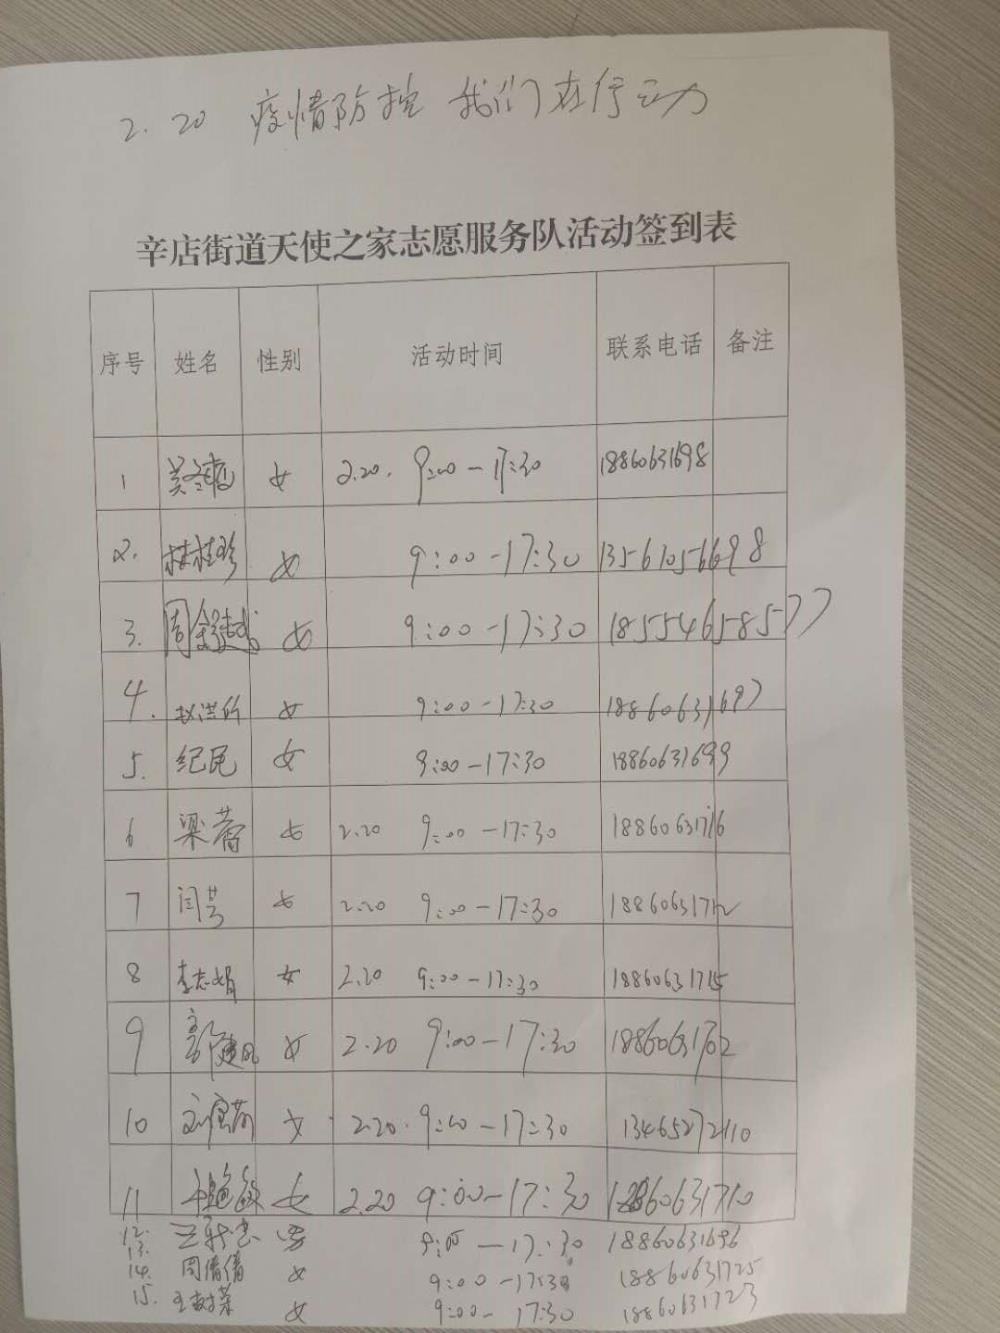 2.20 疫情防控 我们在行动
辛店街道天使之家志愿服务队活动签到表
序号 姓名 性别 活动时间 联系电话 备注
1 女 2.20. 9:00-17:30 18860631698
2. 林桂珍 女 9:00-17:30 13561056698
3. 周 女 9:00-17:30 18554658577
4. 赵洪所 女 9:00-17:30 18860631697
5. 纪民 女 9:00-17:30 18860631699
6 梁蕾 女 2.20 9:00-17:30 18860631716
7 闫芸 女 2.20 9:00-17:30 18860631712
8 李志娟 女 2.20 9:00-17:30 18860631715
9 郭建凤 女 2.20 9:00-17:30 18860631702
10 刘 女 2.20. 9:00-17:30 13465272110
11 女 2.20 9:00-17:30 18860631710
12. 男 9:00-17:30 18860631696
13.
14. 周倩倩 女 9:00-17:30 18860631725
15. 王树菜 女 9:00-17:30 18860631723